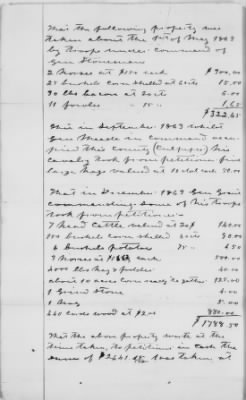 That the following property was
taken about the 1st of May 1863
by troops under command of
Gen Stoneman
2 Horses at $150 each $300.00
25 bushels corn shelled at 60cts 15.00
30 lbs bacon at 20cts 6.00
11 fowls " 15 " 1.65
$322.65
This in September 1863 whilst
Gen Meade in command occu-
pied this County (Culpeper) his
cavalry took from petitioner five
large hogs valued at 10 dol each 50.00
That in December 1863 Gen
commanding some of his troops
took from petitioner
7 head Cattle valued at 140.00
bushels corn shelled 90.00
6 bushels potatoes 75 " 4.50
3 Horses at each 500.00
2000 lbs Hay & fodder 40.00
about 10 acres corn together 125.00
1 Grind Stone 4.00
1 5.00
440 cords wood at $2.00 880.00
$1788.50
That the above property worth at the
time taken, to petitioner in cash the
sum of $2661. was taken at